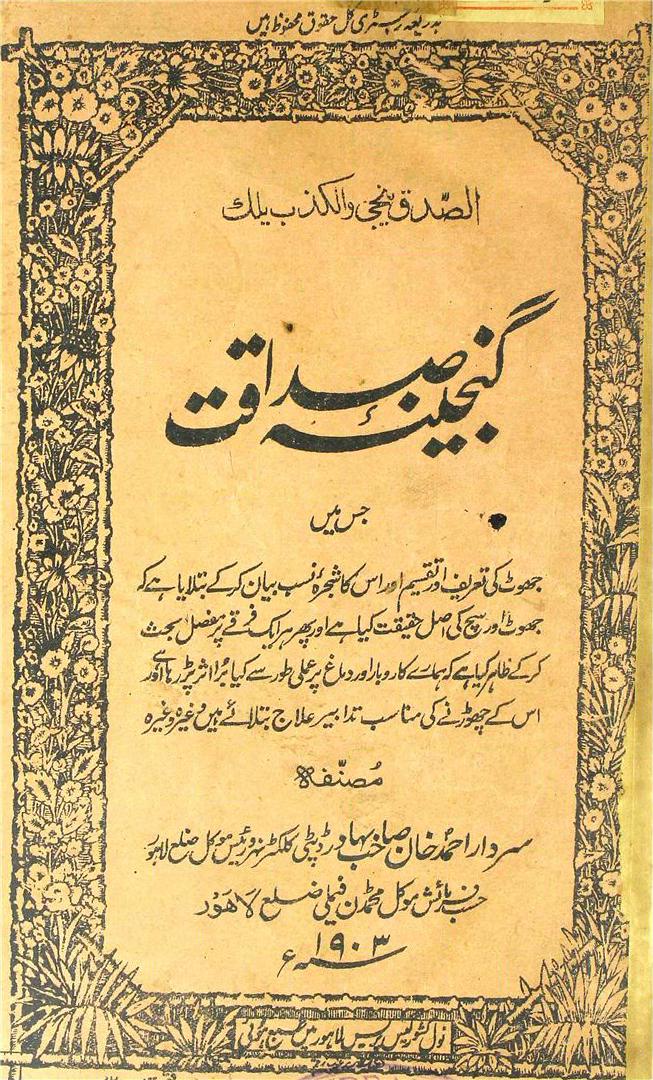 بذریعہ رجسٹری کل حقوق محفوظ ہیں
الصّدق ینجی والکذب یہلک
گنجینۂ صداقت
جس میں
جھوٹ کی تعریف اور تقسیم اور اس کا شجرۂ نسب بیان کر کے بتلایا ہے کہ
جھوٹ اور سچ کی اصل حقیقت کیا ہے اور پھر ہر ایک فرقے پر مفصل بحث
کر کے ظاہر کیا ہے کہ ہمارے کاروبار اور دماغ پر عملی طور سے کیا بُرا اثر پڑ رہا ہے اور
اس کے چھوڑنے کی مناسب تدابیر علاج بتلائے ہیں وغیرہ وغیرہ
مُصنّفہ
سردار احمد خان صاحب بہادر ڈپٹی کلکٹر نہر و رئیس موکل ضلع لاہور
حسب فرمائش موکل محمڈن فیملی ضلع لاہور
سنہ ۱۹۰۳ء
نول کشور گیس پریس لاہور میں طبع ہوئی